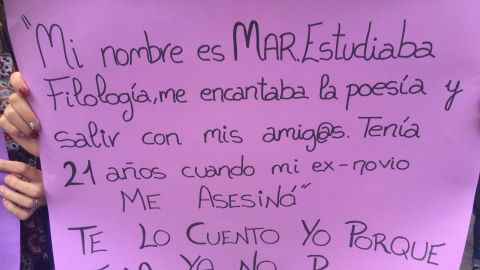 "Mi nombre es MAR. Estudiaba
Filología, me encantaba la poesía y
salir con mis amig@s. Tenía
21 años cuando mi ex-novio
ME ASESINÓ"
TE LO CUENTO YO PORQUE
YA NO